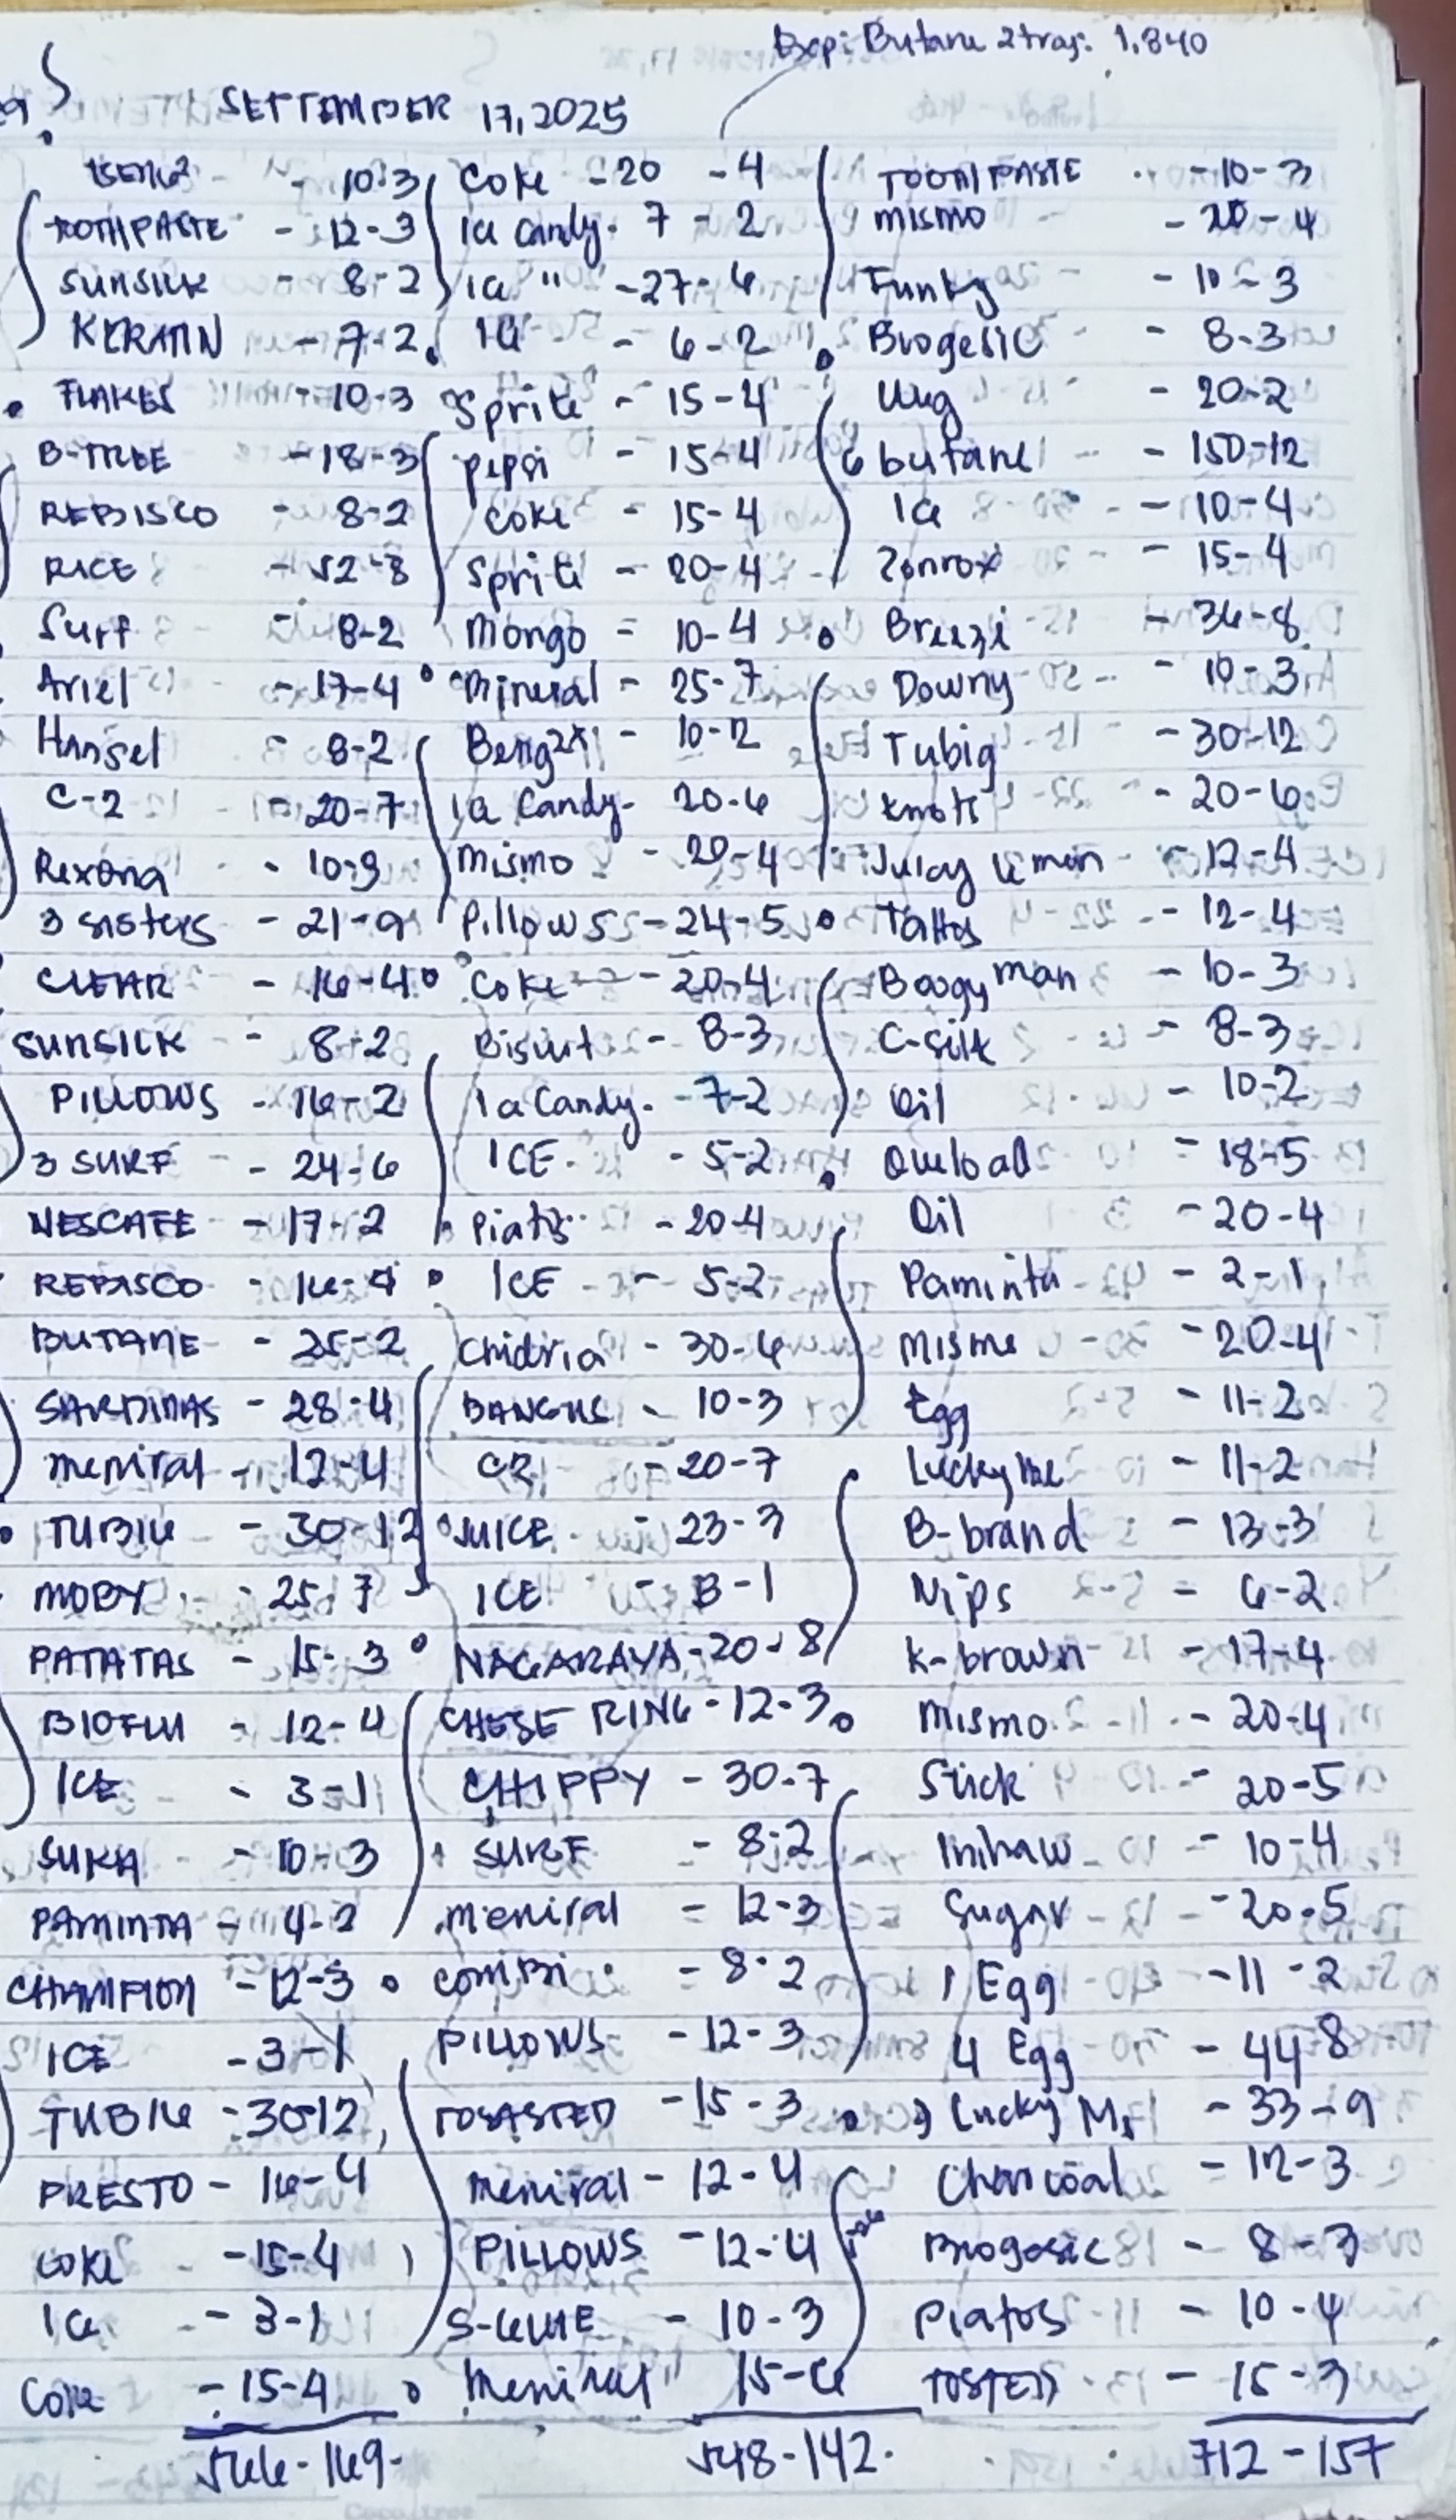 Exp: Butane 2 tray: 1,840
SEPTEMBER 17, 2025
- 10-3
TOOTHPASTE - 12-3
SUNSILK - 8-2
KERATIN - 7-2
FLAKES - 10-3
B-TREE - 18-3
REBISCO - 8-2
RICE - 52-8
Surf - 8-2
Ariel - 17-4
Hansel - 8-2
C-2 - 20-7
Rexona - 10-3
3 sisters - 21-9
CLEAR - 16-4
SUNSILK - 8-2
PILLOWS - 16-2
3 SURF - 24-6
NESCAFE - 17-2
REBISCO - 16-4
BUTANE - 25-2
SARDINAS - 28-4
meniral - 12-4
TUBIG - 30-12
MOBY - 25-7
PATATAS - 15-3
BIOFLU - 12-4
ICE - 3-1
SUKA - 10-3
PAMINTA - 4-2
CHAMPION - 12-3
ICE - 3-1
TUBIG - 30-12
PRESTO - 16-4
COKE - 15-4
Ice - 3-1
Coke - 15-4
566-169
Coke - 20 - 4
Ice Candy - 7 - 2
Ice " - 27-6
Ice - 6-2
Sprite - 15-4
pepsi - 15-4
Coke - 15-4
Sprite - 20-4
Mongo - 10-4
Mineral - 25-7
Beng2x - 10-2
Ice Candy - 20-6
Mismo - 20-4
Pillows - 24-5
Coke - 20-4
Biscuit - 8-3
Ice Candy - 7-2
ICE - 5-2
Piatts - 20-4
ICE - 5-2
Chidria - 30-6
BANGUS - 10-3
C2 - 20-7
JUICE - 23-3
ICE - 3-1
NAGARAYA - 20-8
CHESE RING - 12-3
CHIPPY - 30-7
SURF - 8-2
meniral - 12-3
COMBI - 8-2
PILLOWS - 12-3
TOSASTED - 15-3
Meniral - 12-4
PILLOWS - 12-4
S-GLUE - 10-3
Meniral 15-6
548-142
TOOTHPASTE - 10-3
mismo - 20-4
Funky - 10-3
Biogesic - 8-3
Uling - 20-2
6 butane - 150-12
Ice - 10-4
Zonrox - 15-4
Breeze - 36-8
Downy - 10-3
Tubig - 30-12
knots - 20-6
Juicy lemon - 12-4
Tattos - 12-4
Boogy man - 10-3
C-silk - 8-3
Oil - 10-2
Overload - 18-5
Oil - 20-4
Paminta - 2-1
Mismo - 20-4
Egg - 11-2
Lucky me - 11-2
B-brand - 13-3
Nips - 6-2
K-brown - 17-4
Mismo - 20-4
Stick - 20-5
Inihaw - 10-4
Sugar - 20-5
1 Egg - 11-2
4 Egg - 44-8
3 Lucky Me - 33-9
Charcoal - 12-3
Biogesic - 8-3
Piatos - 10-4
TOSTED - 15-3
712-157